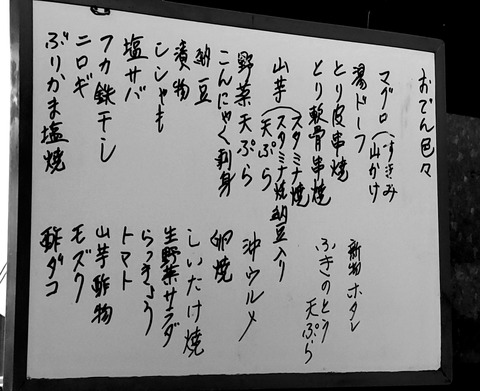 おでん色々
マグロ(すきみ
山かけ
湯ドーフ
とり皮串焼
とり軟骨串焼
山芋(スタミナ焼
スタミナ焼納豆入り
天ぷら
野菜天ぷら
こんにゃく刺身
納豆
漬物
ししゃも
塩サバ
フカ鉄干し
ニロギ
ぶりかま塩焼
新物ホタレ
ふきのとう
天ぷら
沖ウルメ
卵焼
しいたけ焼
生野菜サラダ
らっきょう
トマト
山芋酢物
モズク
酢ダコ